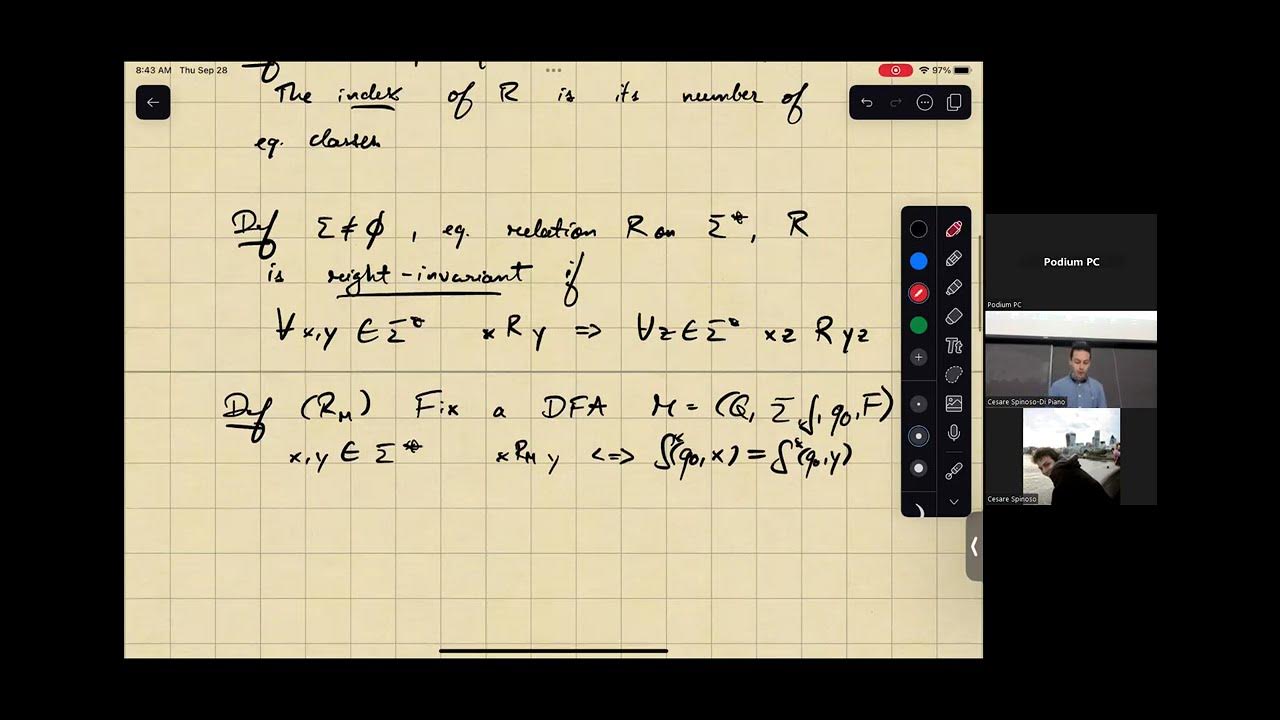 8:43 AM Thu Sep 28
97%
The index of R is its number of
eq. classes
Def Σ ≠ ∅, eq. relation R on Σ*, R
is right-invariant if
∀x,y ∈ Σ* x R y => ∀z ∈ Σ* xz R yz
Def (R_M) Fix a DFA M = (Q, Σ, δ, q₀, F)
x,y ∈ Σ* x R_M y <=> δ*(q₀, x) = δ*(q₀, y)
Tt
Podium PC
Podium PC
Cesare Spinoso-Di Piano
Cesare Spinoso